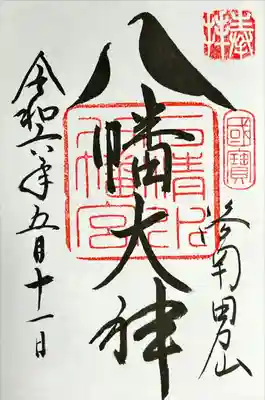 奉拝
國寶
洛南男山
八幡大神
石清水八幡宮
令和六年五月十一日